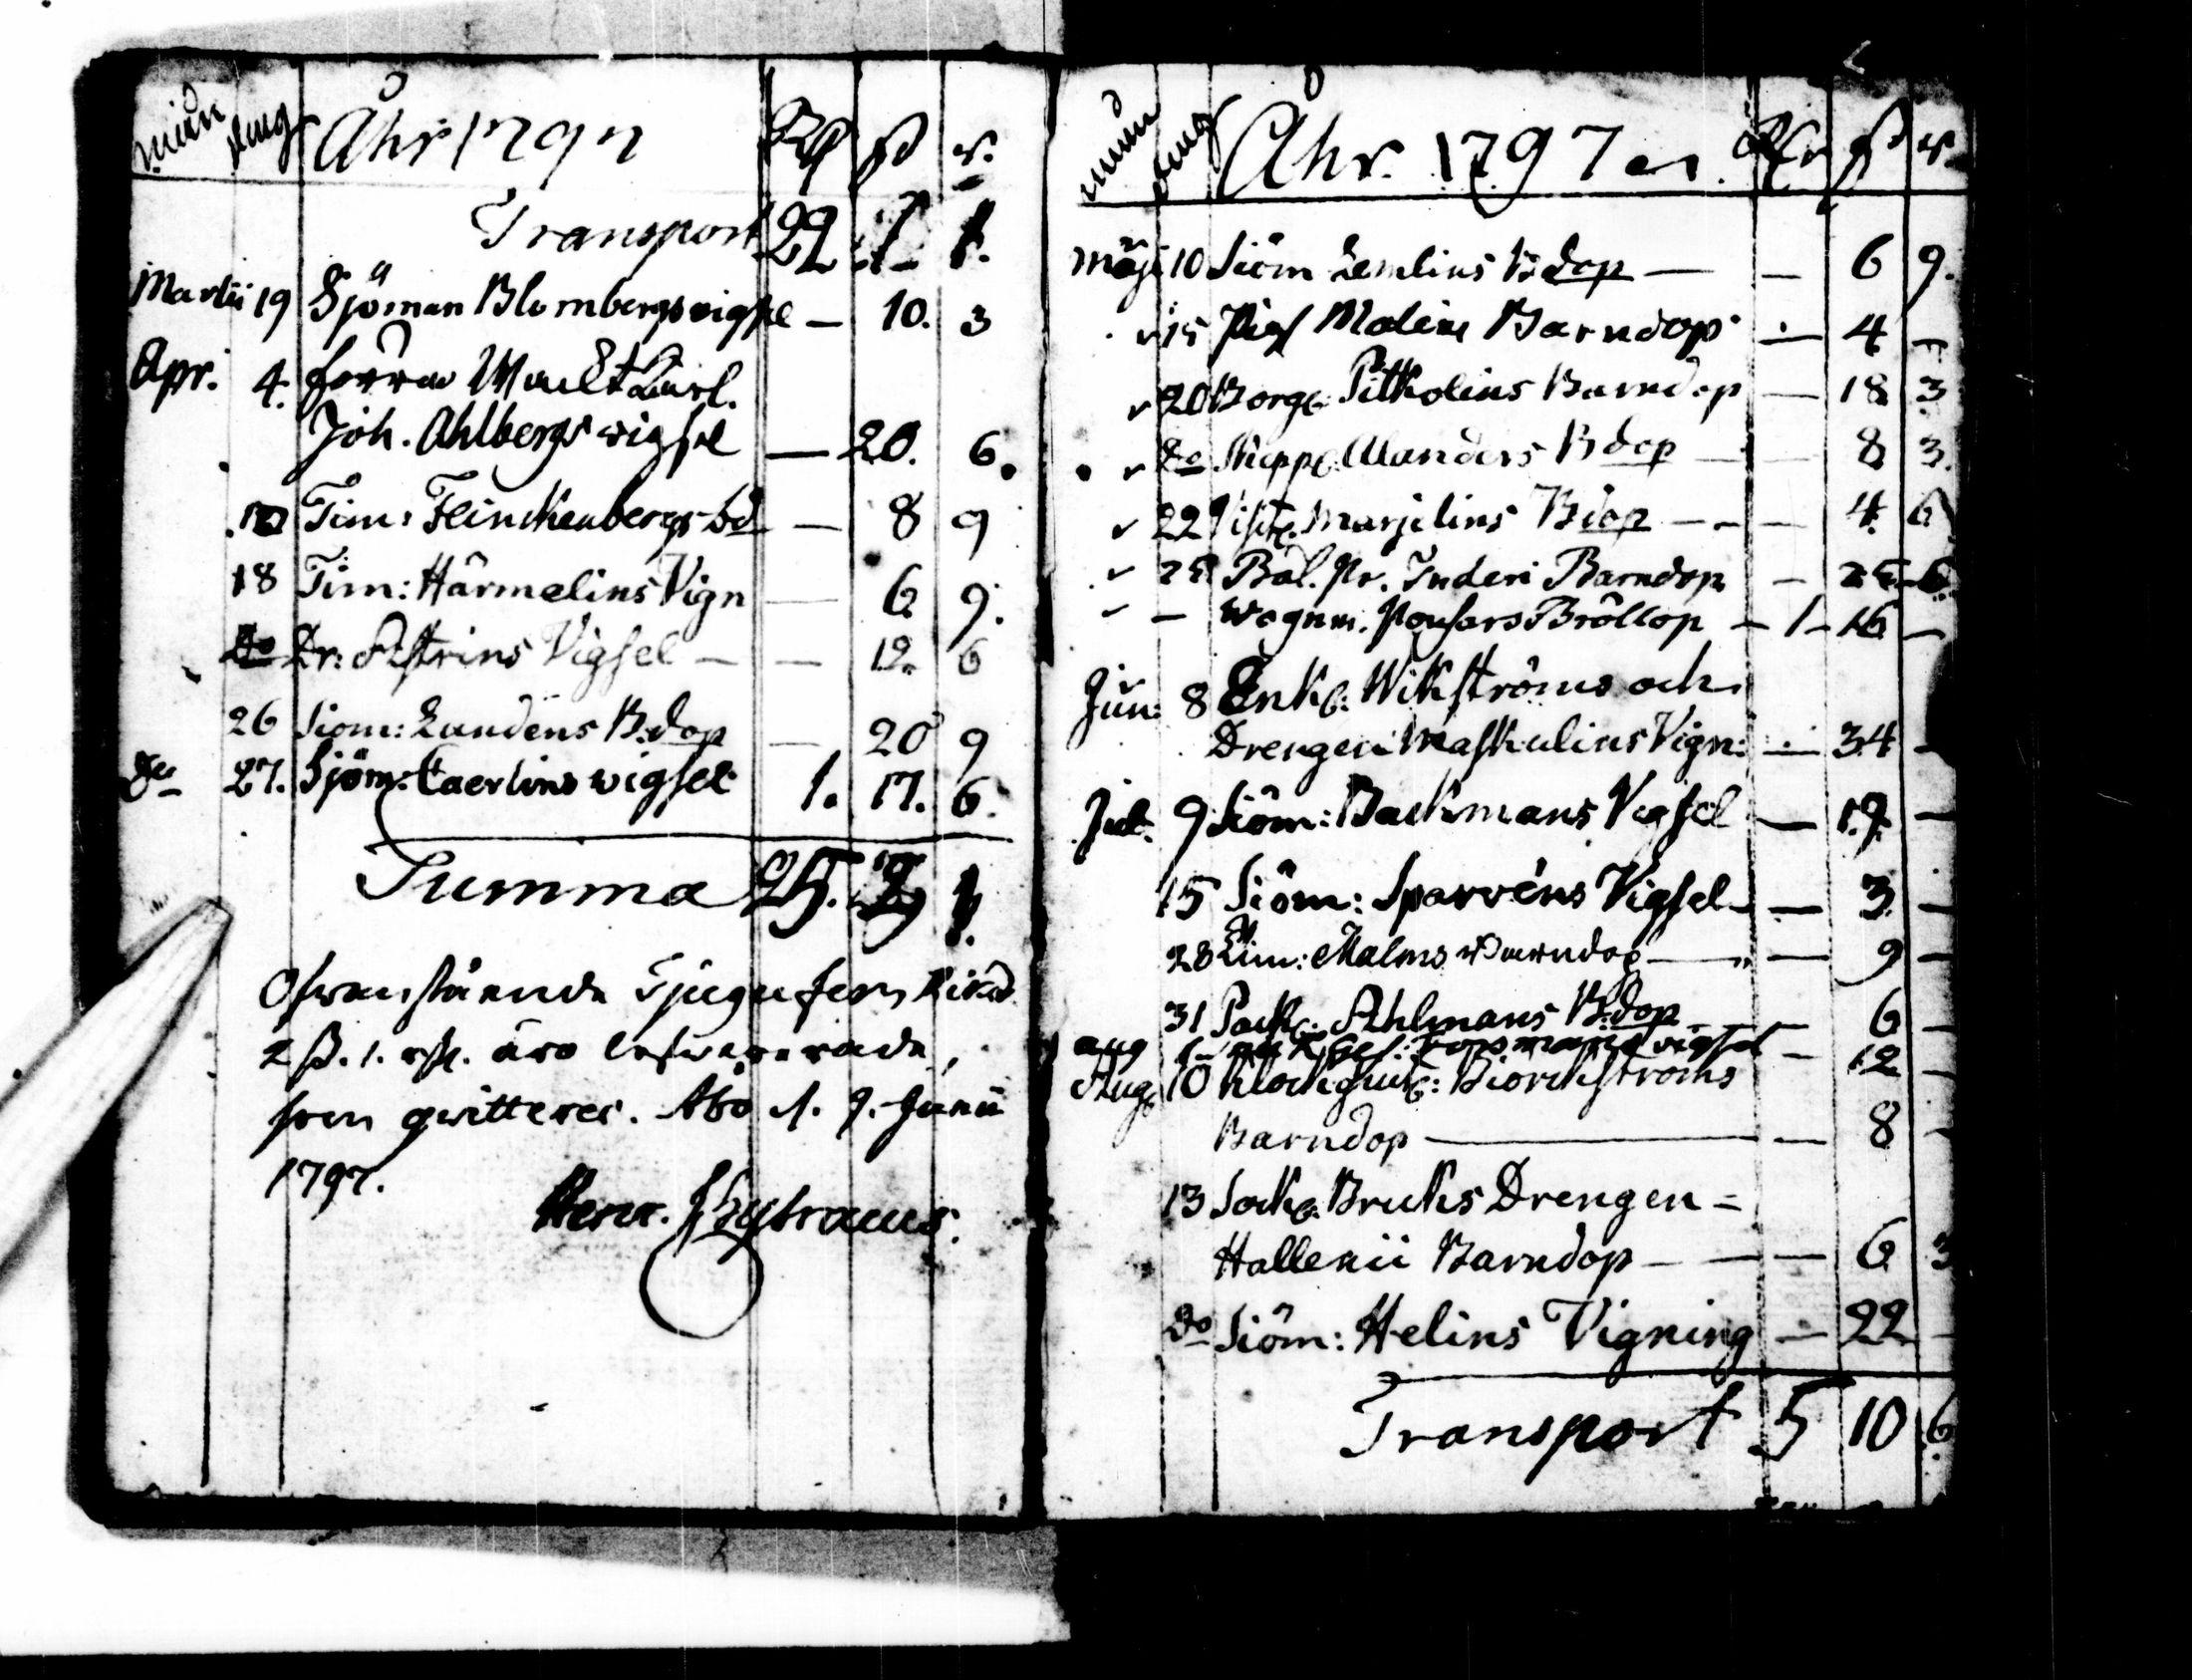 Åhr 1797
Transport 22. 1. 1.
Martii 19 Sjöman Blombergs vigsel — 10. 3
Apr. 4. förra
Joh. Ahlbergs wigsel — 20. 6.
12 Tim: Flinckenbergs bd — 8 9
18 Tim: Härmelins Vign — 6 9.
do Dr: Astrins Vigsel — — 12. 6
26 Siöm: Lundens B:dop — 20 9
do 27. Sjöm: Caerlins wigsel 1. 17. 6.
Summa 25. 2 1.
Ofwanstående Tjugufem Riksd
2 ß. 1. rst. äro lefwererade,
som qwitteres. Åbo d. 9. Junii
1797.
Åhr. 1797 en. ß r.
Maji 10 Siöm Lemlins B dop — — 6 9.
15 Malins Barndop — 4 —
20 Borg: Pitkolins Barndop — 18 3
do Skepp: Alanders B dop — 8 3.
22 Marjelins B dop — — 4. 6
25 Inderi Barndop —
— Wagnm. Ponsars Bröllop — 1 — 16 —
Jun: 8 Enk: Wikströms och
Drengen Maskulins Vign: — 34 —
Jul. 9 Siöm: Backmans Vigsel — 17. —
15 Siöm: Sparvéns Vigsel — — 3. —
28 Tim: Malms Barndop — — 9 —
31 Pack: Ahlmans B:dop — 6 —
aug vigsel — 12 —
Aug. 10 Klockgiut: Biörckströms
Barndop — — 8 —
13 Sock: Bruks Drengen =
Hallenii Barndop — — 6. 3
do Siöm: Helins Vigning — 22 —
Transport 5 10 6